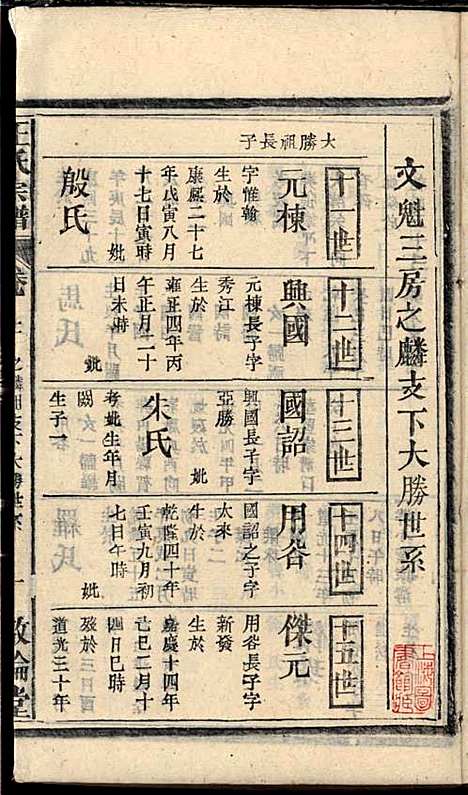 文魁三房之麟支下大勝世系
十一世
大勝祖長子
元棟
字惟翰
生於
康熙二十七
年戊寅八月
十七日寅時
妣
殷氏
十二世
興國
元棟長子字
秀江
生於
雍正四年丙
午正月二十
日未時
妣
十三世
國詔
興國長子字
亞勝
生於
妣
朱氏
考妣生年月
闕
生子一
十四世
用谷
國詔之子字
太來
生於
乾隆四十年
壬寅九月初
七日午時
妣
十五世
傑元
用谷長子字
新發
生於
嘉慶十四年
己巳二月十
四日巳時
歿於三日酉
道光三十年
王氏宗譜
卷
之麟三支下大勝世系
一
敦倫堂